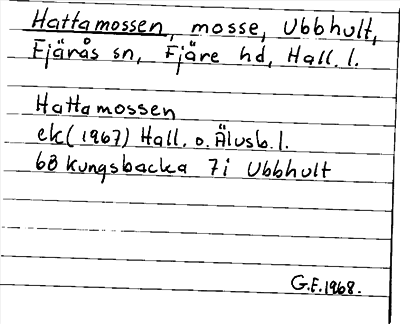 Hattamossen, mosse, Ubbhult,
Fjärås sn, Fjäre hd, Hall. l.
Hattamossen
ek (1967) Hall. o. Älvsb. l.
6B Kungsbacka 7i Ubbhult
G.E. 1968.